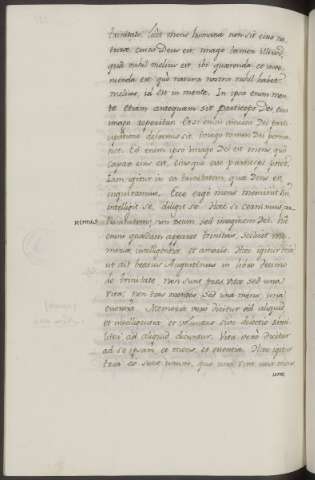 trinitate. licet mens humana non sit eius na
turae cuius Deus est. imago tamen illius,
quo nihil melius est, ibi quaerenda et inve
nienda est quo natura nostra nihil habet
melius, id est in mente. In ipsa enim men
te etiam antequam sit particeps Dei eius
imago reperitur. Licet enim amissa Dei parti
cipatione deformis sit. Imago tamen Dei perma
net. Eo enim ipso imago Dei est mens quo
capax eius est, eiusque esse particeps potest.
Iam igitur in ea trinitatem quae Deus est
inquiramus. Ecce ergo mens meminit sui
intelligit se, diligit se. Hoc si cernimus, cer
nimus trinitatem, non Deum sed imaginem Dei. Hic
enim quaedam apparet trinitas, scilicet me
moria, intelligentia et amoris. Haec igitur tria
ut ait beatus Augustinus in libro decimo
de trinitate non sunt tres vitae sed una
vita, nec tres mentes sed una mens, una
essentia. Memoria vero dicitur ad aliquid
et intelligentia et voluntas sive dilectio simi
liter ad aliquid dicuntur. Vita vero dicitur
ad se ipsam, et mens, et essentia. Haec igitur
tria eo sunt unum, quo una vita una mens
una